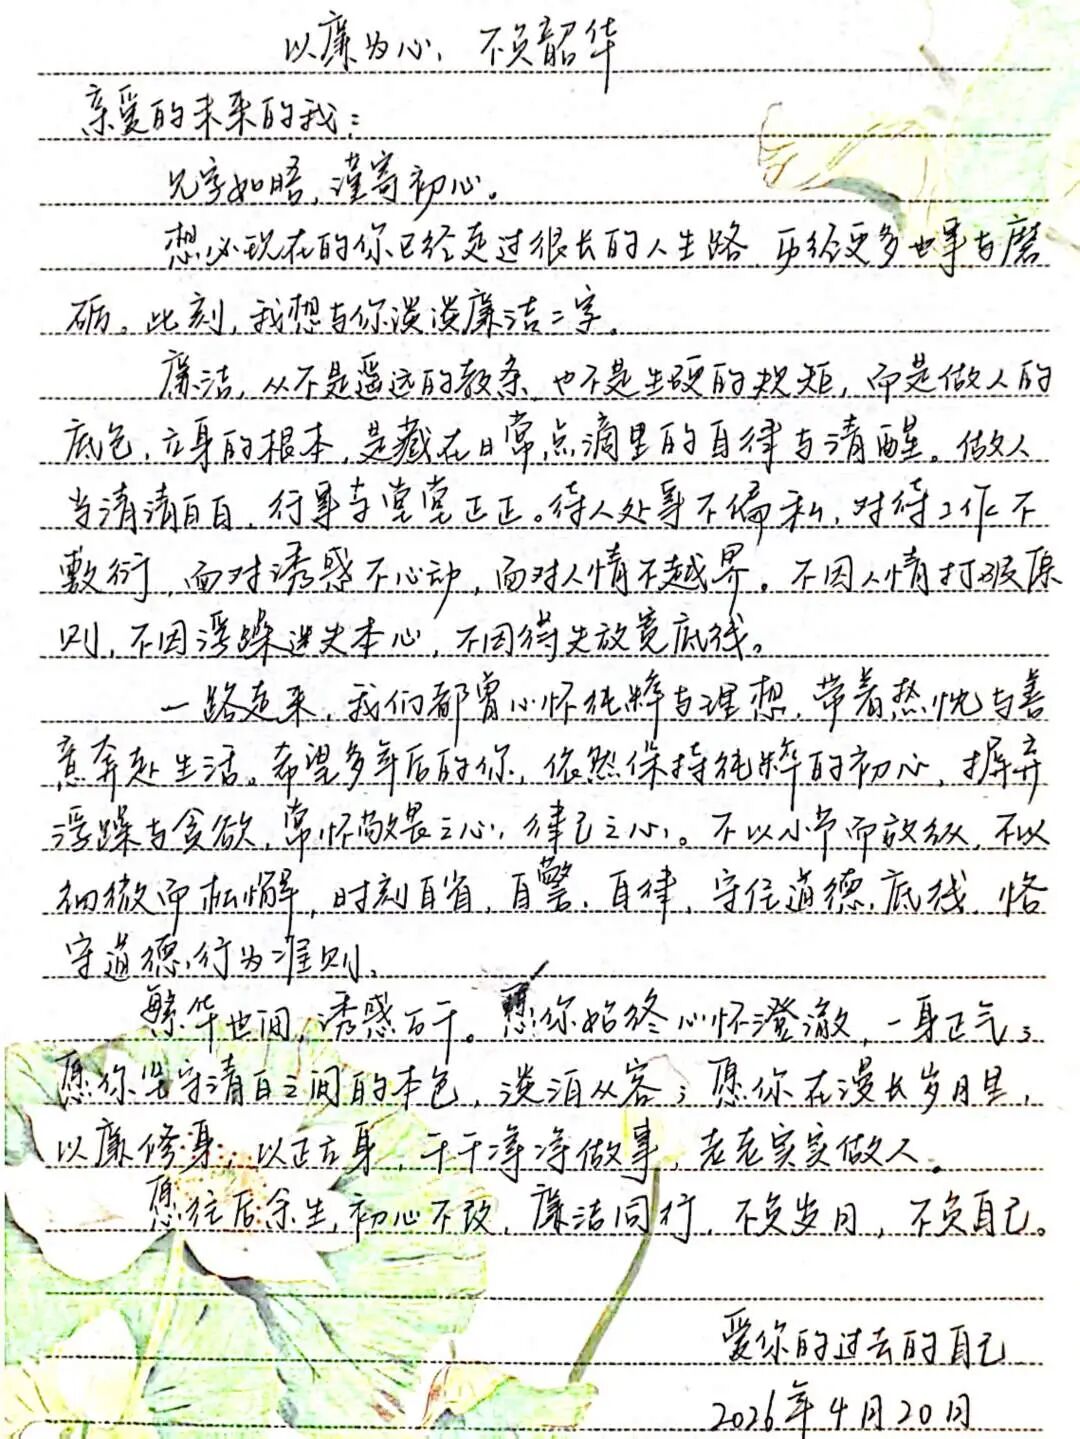 以廉为心，不负韶华
亲爱的未来的我：
见字如晤，谨寄初心。
想必现在的你已经走过很长的人生路 历经更多世事与磨
砺。此刻，我想与你谈谈廉洁二字。
廉洁，从不是遥远的教条 也不是生硬的规矩，而是做人的
底色，立身的根本，是藏在日常点滴里的自律与清醒。做人
当清清白白，行事当堂堂正正。待人处事不偏私，对待工作不
敷衍，面对诱惑不心动，面对人情不越界。不因人情打破原
则，不因浮躁迷失本心，不因得失放宽底线。
一路走来，我们都曾心怀纯粹与理想，带着热忱与善
意奔赴生活。希望多年后的你，依然保持纯粹的初心，摒弃
浮躁与贪欲，常怀敬畏之心，律己之心。不以小节而放纵，不以
细微而松懈，时刻自省，自警，自律，守住道德底线，恪
守道德行为准则，
繁华世间，诱惑百千。愿你始终心怀澄澈，一身正气；
愿你坚守清白之间的本色，淡泊从容；愿你在漫长岁月里，
以廉修身，以正立身，干干净净做事，老老实实做人。
愿往后余生，初心不改，廉洁同行，不负岁月，不负自己。
爱你的过去的自己
2026年4月20日